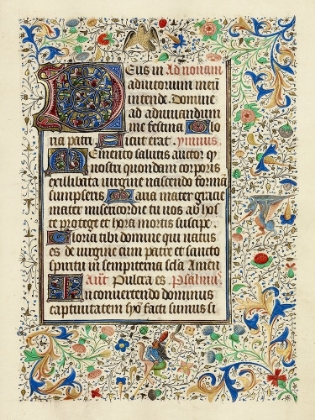 Deus in Ad nonam
adiutorium meū
intende. domine
ad adiuuandum
me festina Glo
ria patri Sicut erat. ymnus.
Memento salutis auctor q̄
nostri quondam corporis
ex illibata uirgine nascendo formā
sumpseris Maria mater gracie
mater misericordie tu nos ab hoste
protege et hora mortis suscipe
Gloria tibi domine qui natus
es de uirgine cum patre et sancto
spiritu in sempiterna secula Amen
Ant Pulcra es. Psalmus
In conuertendo dominus
captiuitatem syon facti sumus